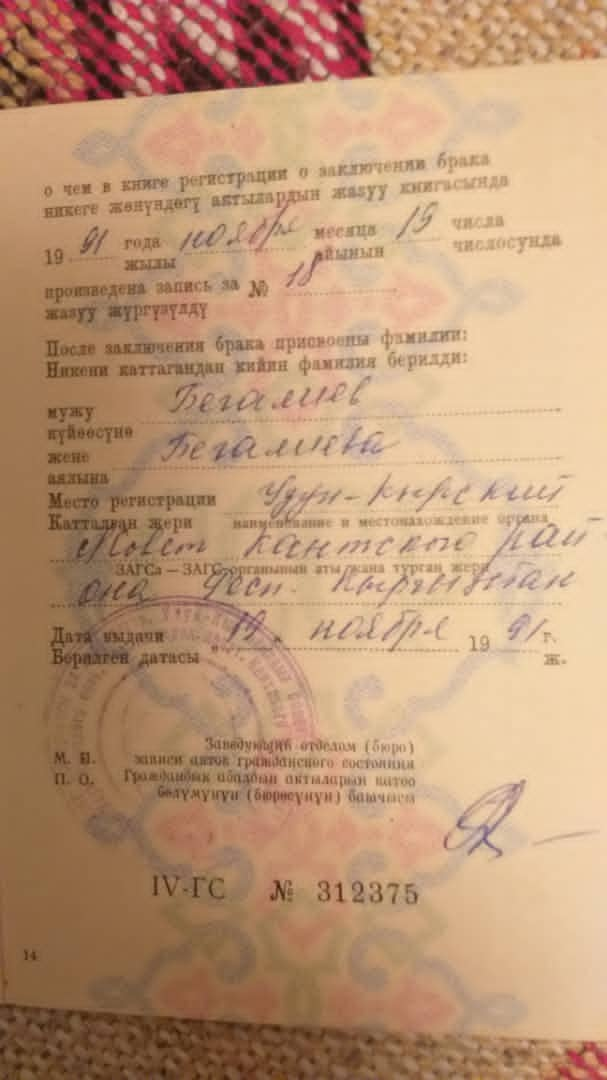 о чем в книге регистрации о заключении брака
никеге жөнүндөгү актылардын жазуу книгасында
19 91 года ноября месяца 19 числа
жылы айынын числосунда
произведена запись за № 18
жазуу жүргүзүлдү
После заключения брака присвоены фамилии:
Никени каттагандан кийин фамилия берилди:
мужу Бегалиев
күйөөсүнө
жене Бегалиева
аялына
Место регистрации Удун-Кырский
Катталган жери наименование и местонахождение органа
Кантского рай
ЗАГСа — ЗАГС органынын аты жана турган жери
она Респ. Кыргызстан
Дата выдачи „ 19 " ноября 19 91 г.
Берилген датасы ж.
Заведующий отделом (бюро)
М. П. записи актов гражданского состояния
П. О. Граждандык абалдын актыларын каттоо
бөлүмүнүн (бюросунун) башчысы
IV-ГС № 312375
14